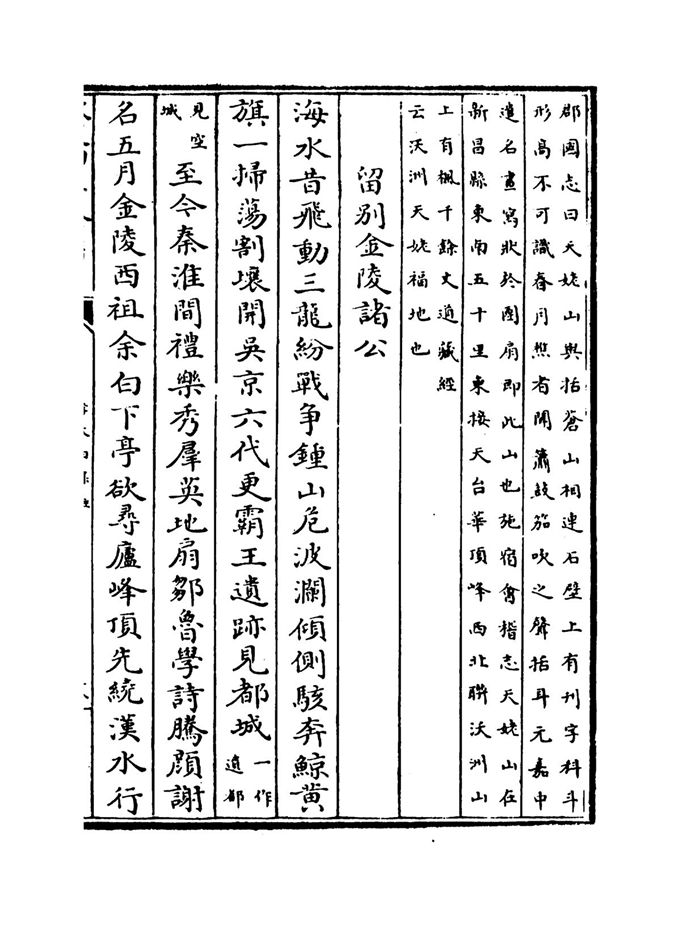 郡國志曰天姥山與括蒼山相連石壁上有刋字科斗
形高不可識春月樵者聞簫鼓笳吹之聲括耳元嘉中
遣名畫寫狀於團扇即此山也施宿會稽志天姥山在
新昌縣東南五十里東接天台華頂峰西北聯沃洲山
上有楓千餘丈道藏經
云沃洲天姥福地也
留别金陵諸公
海水昔飛動三龍紛戰争鍾山危波瀾傾側駭奔鯨黄
旗一掃蕩割壤開吳京六代更霸王遺跡見都城一作遺都
見空城至今秦淮間禮樂秀羣英地扇鄒魯學詩騰顔謝
名五月金陵西祖余白下亭欲尋廬峰頂先繞漢水行